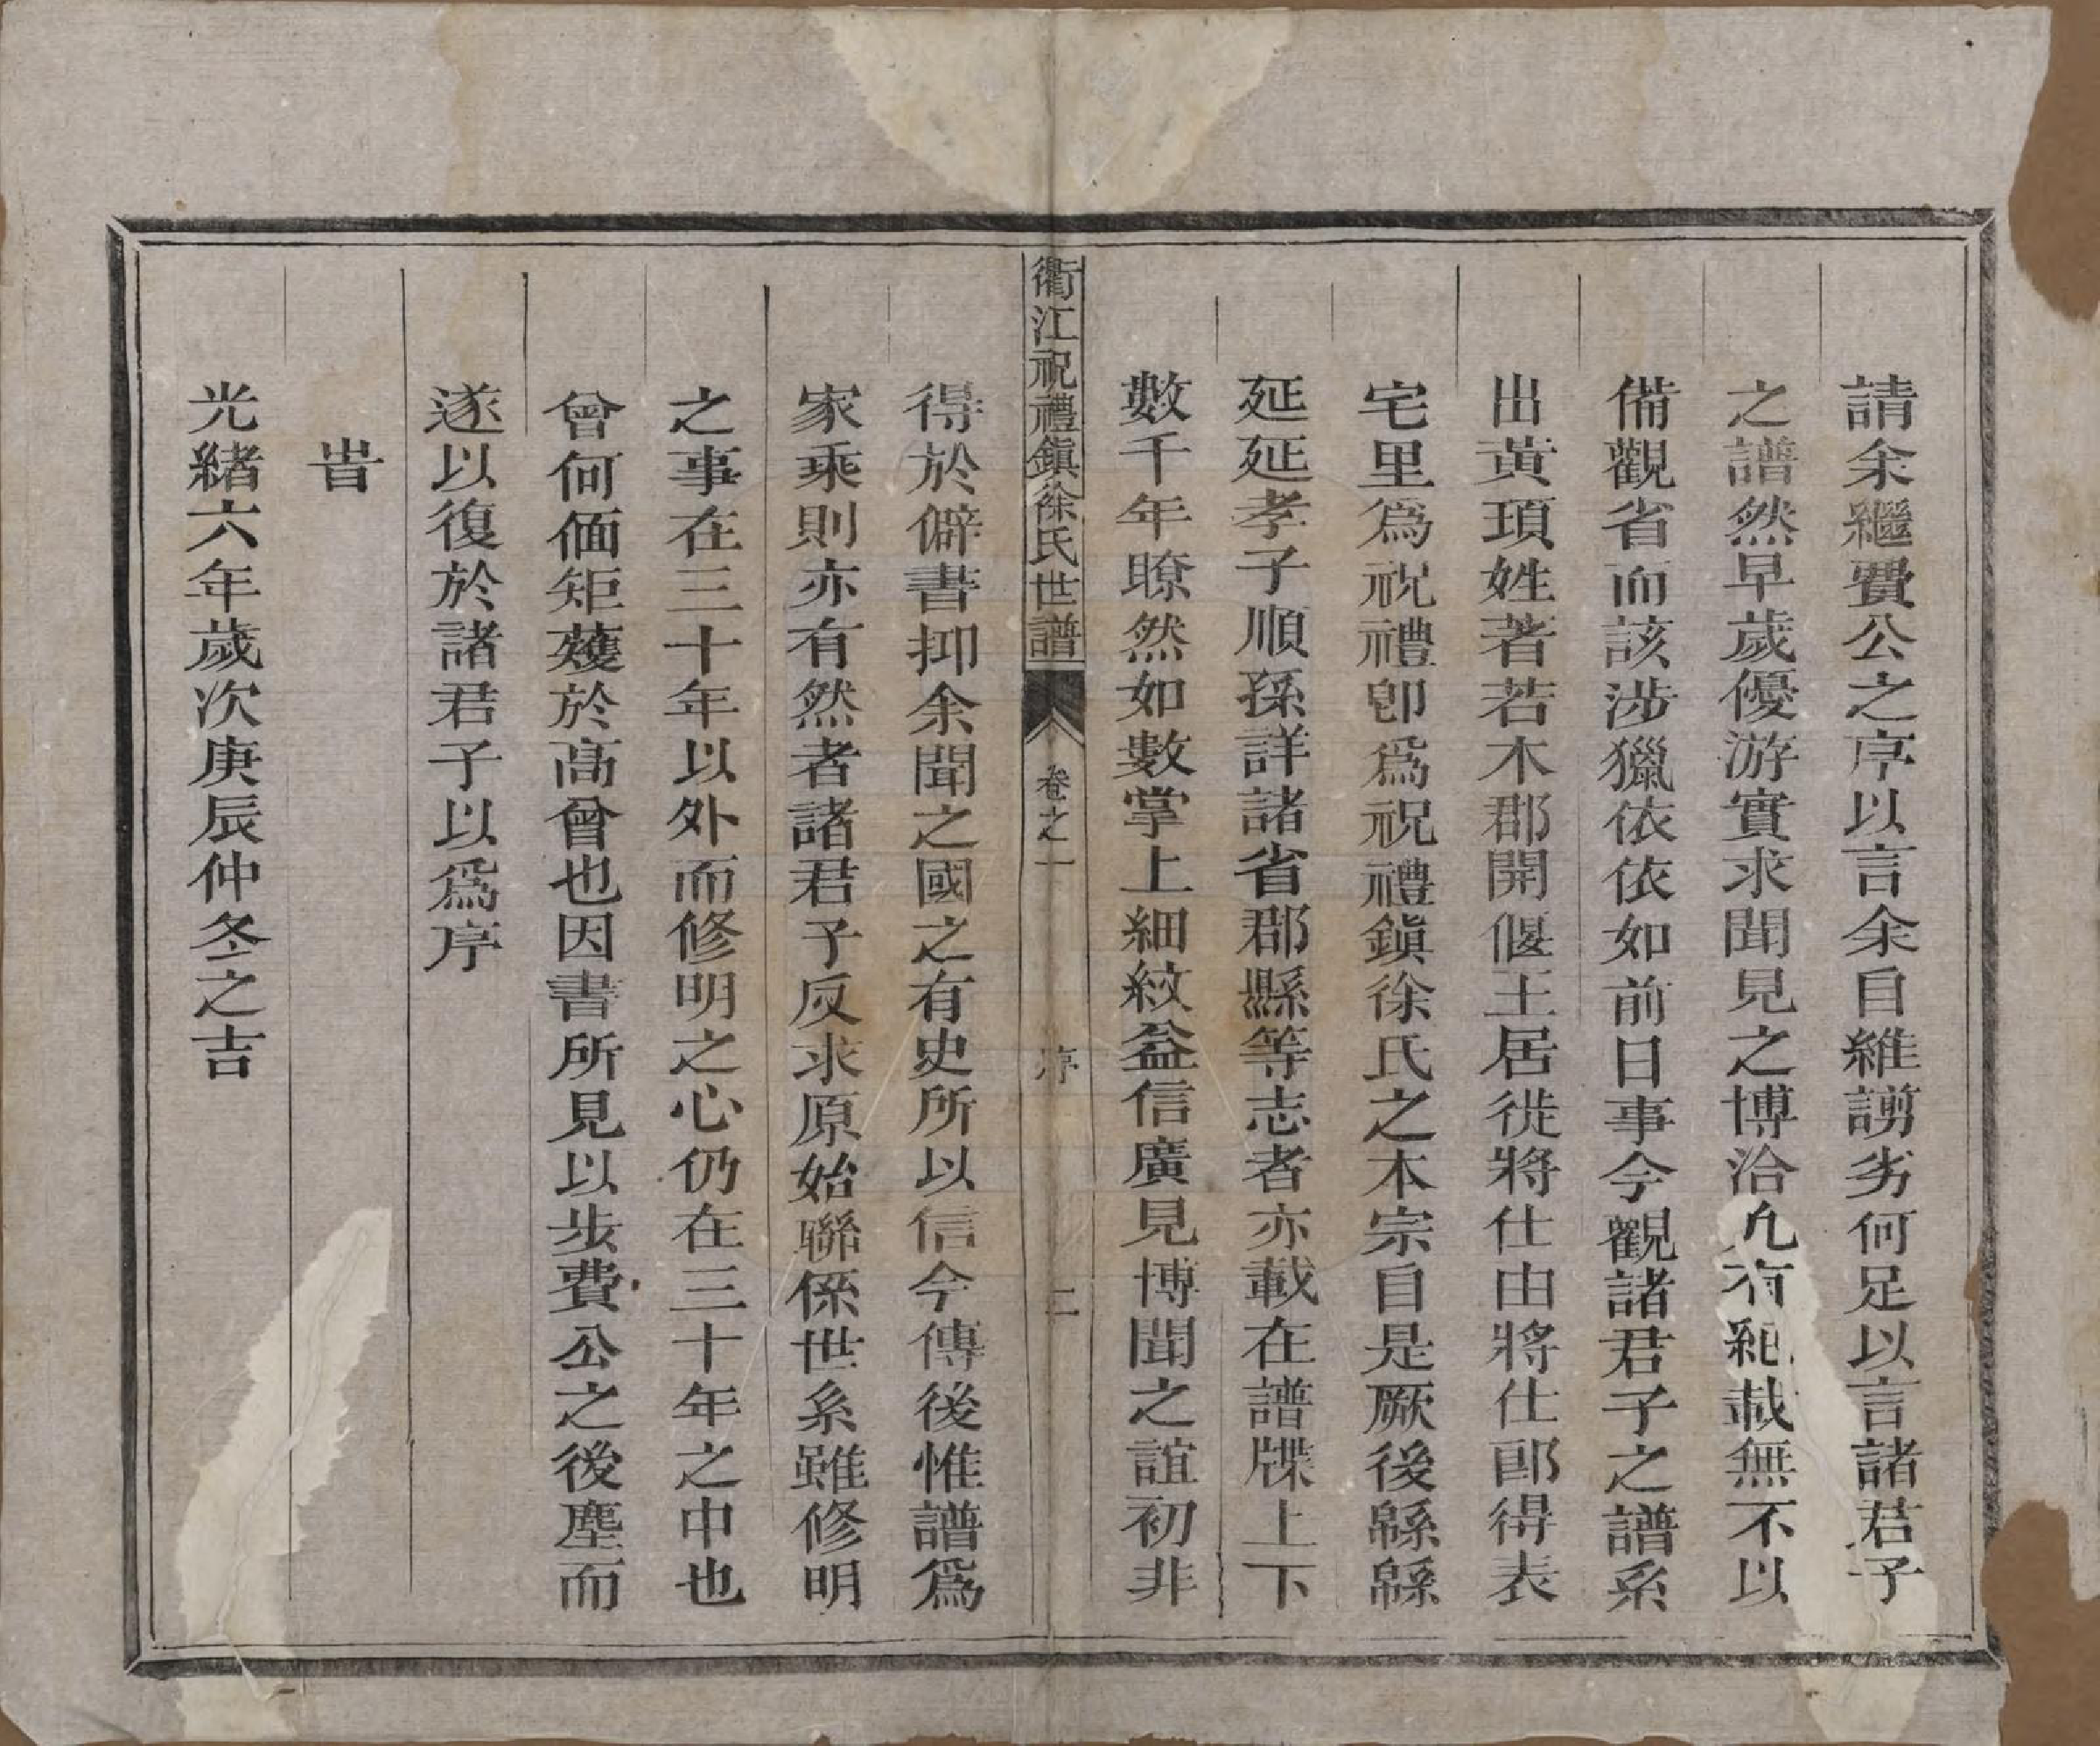 請余繼費公之序以言余自維謭劣何足以言諸君子
之譜然早歲優游實求聞見之博洽凡有紀載無不以
備觀省而該涉獵依依如前日事今觀諸君子之譜系
出黃頊姓著若木郡開偃王居徙將仕由將仕郎得表
宅里為祝禮卽為祝禮鎭徐氏之本宗自是厥後緜緜
延延孝子順孫詳諸省郡縣等志者亦載在譜牒上下
數千年暸然如數掌上細紋益信廣見博聞之誼初非
衢江祝禮鎭徐氏世譜 卷之一 序 二
得於僻書抑余聞之國之有史所以信今傳後惟譜為
家乘則亦有然者諸君子反求原始聯係世系雖修明
之事在三十年以外而修明之心仍在三十年之中也
曾何偭矩蒦於高曾也因書所見以步費公之後塵而
遂以復於諸君子以為序
旹
光緒六年歲次庚辰仲冬之吉